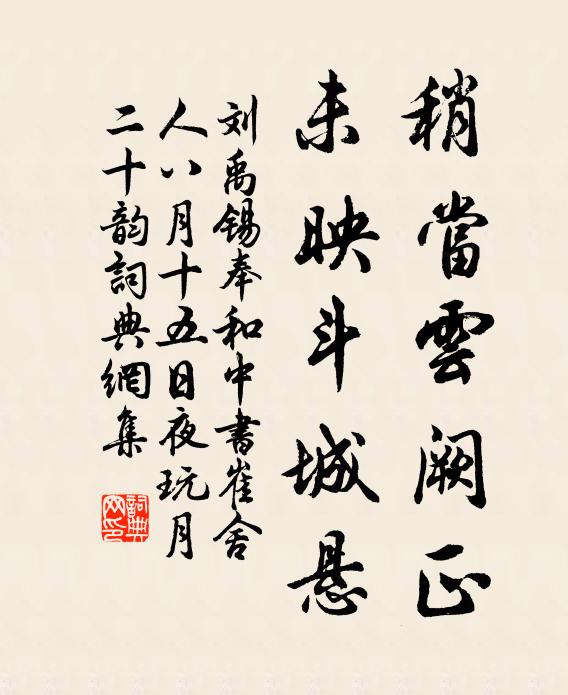 稍當雲阙正
未映斗城悬
刘禹锡奉和中書崔舍
人八月十五日夜玩月
二十韵詞典網集
詞典
网印